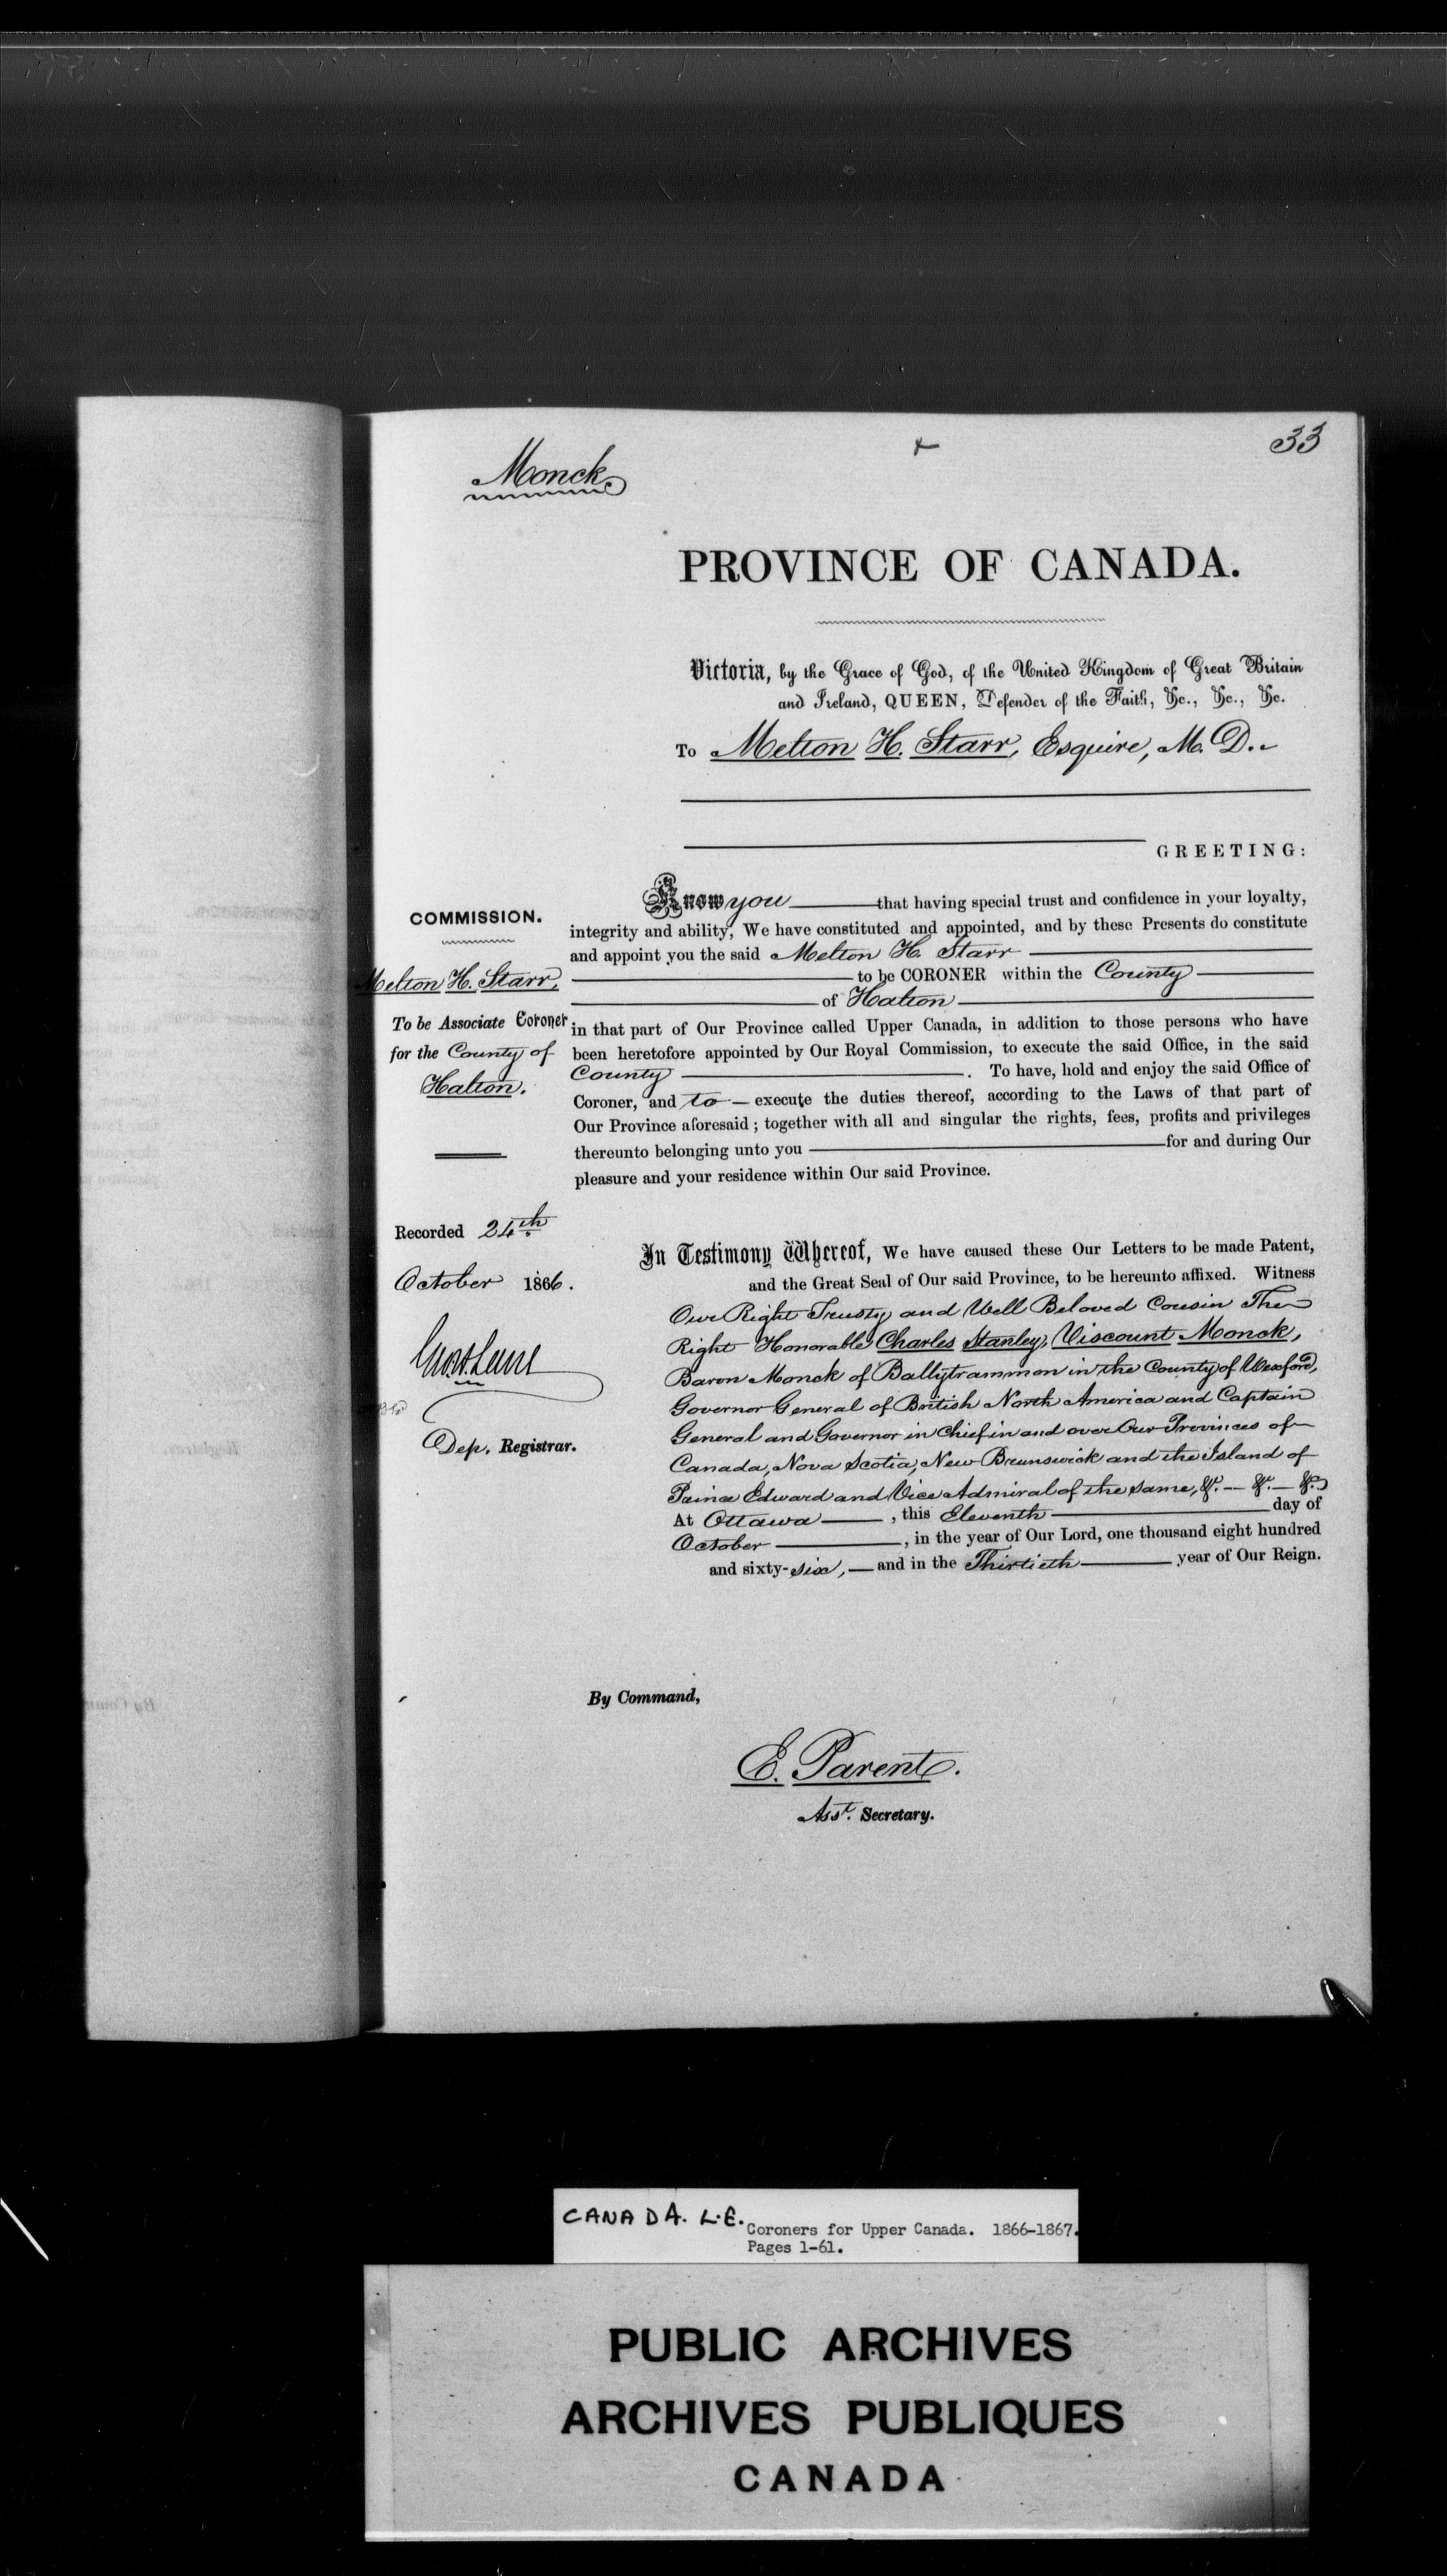 33
Monck
PROVINCE OF CANADA.
Victoria, by the Grace of God, of the United Kingdom of Great Britain
and Ireland, QUEEN, Defender of the Faith, &c., &c., &c.
To Melton H. Starr, Esquire, M. D.
GREETING:
COMMISSION.
Melton H. Starr,
To be Associate Coroner
for the County of
Halton.
Recorded 24th
October 1866.
Dep. Registrar.
Know you that having special trust and confidence in your loyalty,
integrity and ability, We have constituted and appointed, and by these Presents do constitute
and appoint you the said Melton H. Starr
to be CORONER within the County
of Halton
in that part of Our Province called Upper Canada, in addition to those persons who have
been heretofore appointed by Our Royal Commission, to execute the said Office, in the said
County . To have, hold and enjoy the said Office of
Coroner, and to execute the duties thereof, according to the Laws of that part of
Our Province aforesaid; together with all and singular the rights, fees, profits and privileges
thereunto belonging unto you for and during Our
pleasure and your residence within Our said Province.
In Testimony Whereof, We have caused these Our Letters to be made Patent,
and the Great Seal of Our said Province, to be hereunto affixed. Witness
Our Right Trusty and Well Beloved Cousin The
Right Honorable Charles Stanley, Viscount Monck,
Baron Monck of Ballytrammon in the County of Wexford,
Governor General of British North America and Captain
General and Governor in Chief in and over Our Provinces of
Canada, Nova Scotia, New Brunswick and the Island of
Prince Edward and Vice Admiral of the same, &c. — &c. — &c.
At Ottawa , this Eleventh day of
October , in the year of Our Lord, one thousand eight hundred
and sixty-six, and in the Thirtieth year of Our Reign.
By Command,
E. Parent.
Asst. Secretary.
CANADA. L.E.
Coroners for Upper Canada. 1866-1867.
Pages 1-61.
PUBLIC ARCHIVES
ARCHIVES PUBLIQUES
CANADA